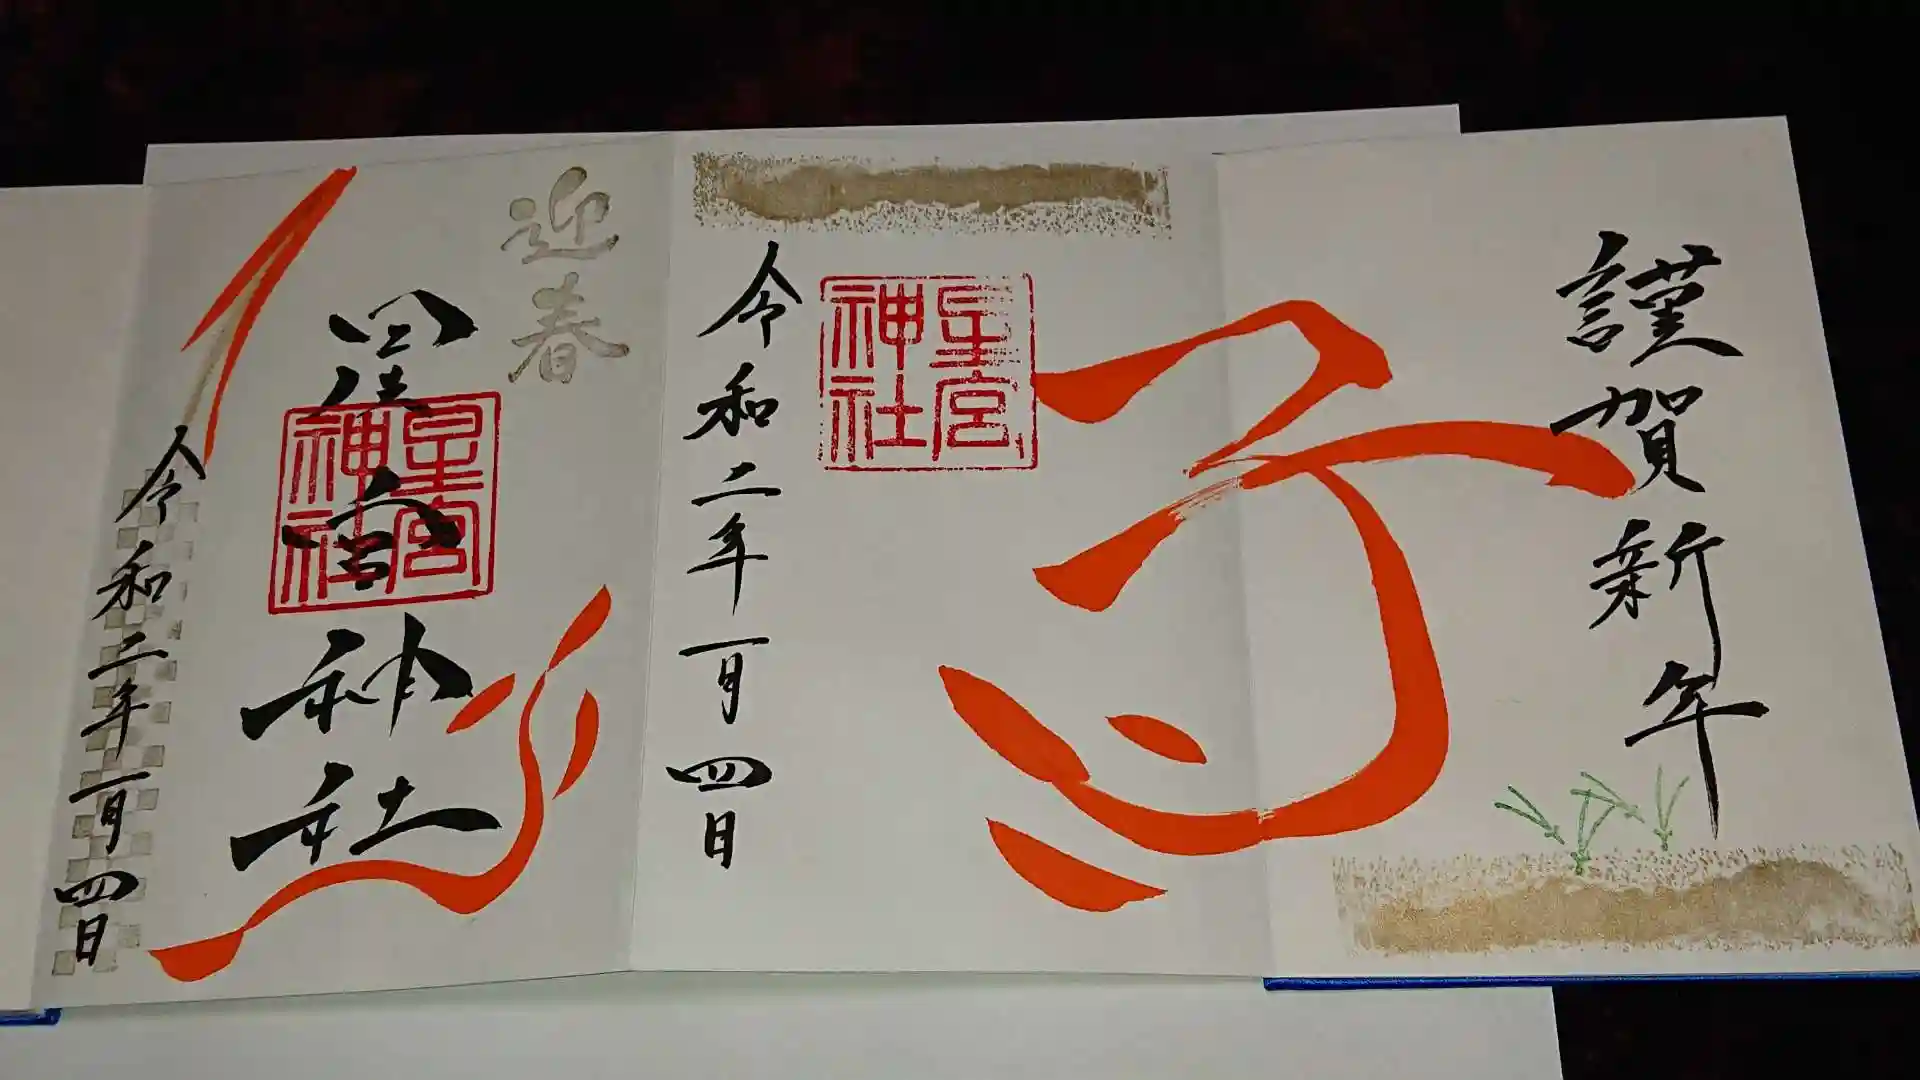 謹賀新年
子
星宮
神社
令和二年一月四日
迎春
星宮神社
星宮
神社
令和二年一月四日